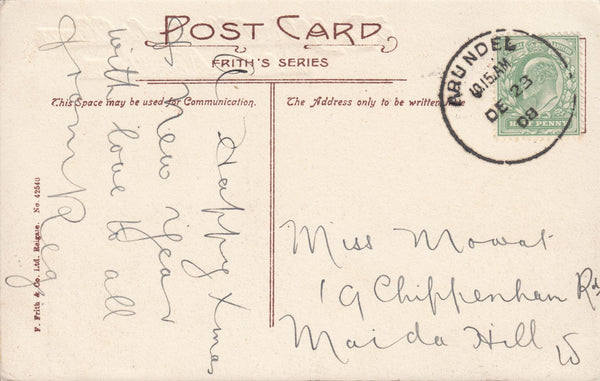 POST CARD
FRITH'S SERIES
This Space may be used for Communication.
The Address only to be written
A Happy Xmas
& New Year
with love to all
from Reg
Miss Mowat
19 Chippenham Rd
Maida Hill W
ARUNDEL
10.15 AM
DE 23
09
HALF PENNY
F. Frith & Co. Ltd. Reigate. No. 42540